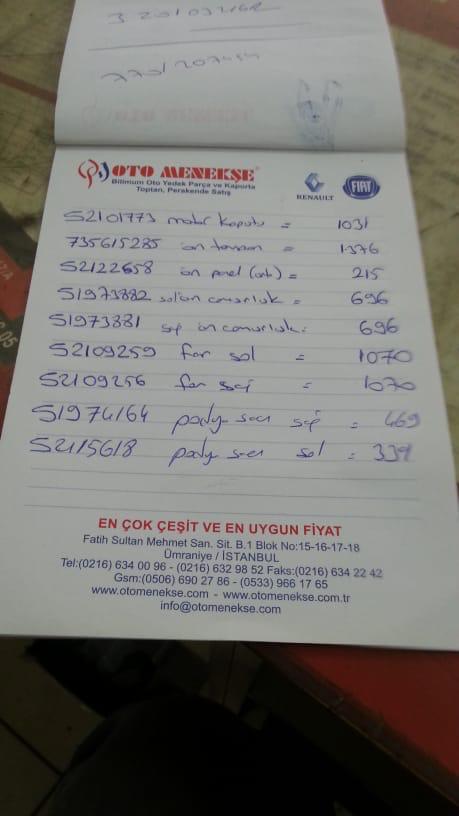 OTO MENEKŞE
Bilimum Oto Yedek Parça ve Kaporta
Toptan, Perakende Satış
RENAULT
FIAT
52101773 motor kaputu = 1031
735615285 ön tampon = 1376
52122658 ön panel (üst) = 215
51973882 sol ön çamurluk = 696
51973881 sağ ön çamurluk = 696
52109259 far sol = 1070
52109256 far sağ = 1070
51974164 sağ = 469
52115618 sol = 339
EN ÇOK ÇEŞİT VE EN UYGUN FİYAT
Fatih Sultan Mehmet San. Sit. B.1 Blok No:15-16-17-18
Ümraniye / İSTANBUL
Tel:(0216) 634 00 96 - (0216) 632 98 52 Faks:(0216) 634 22 42
Gsm:(0506) 690 27 86 - (0533) 966 17 65
www.otomenekse.com - www.otomenekse.com.tr
info@otomenekse.com